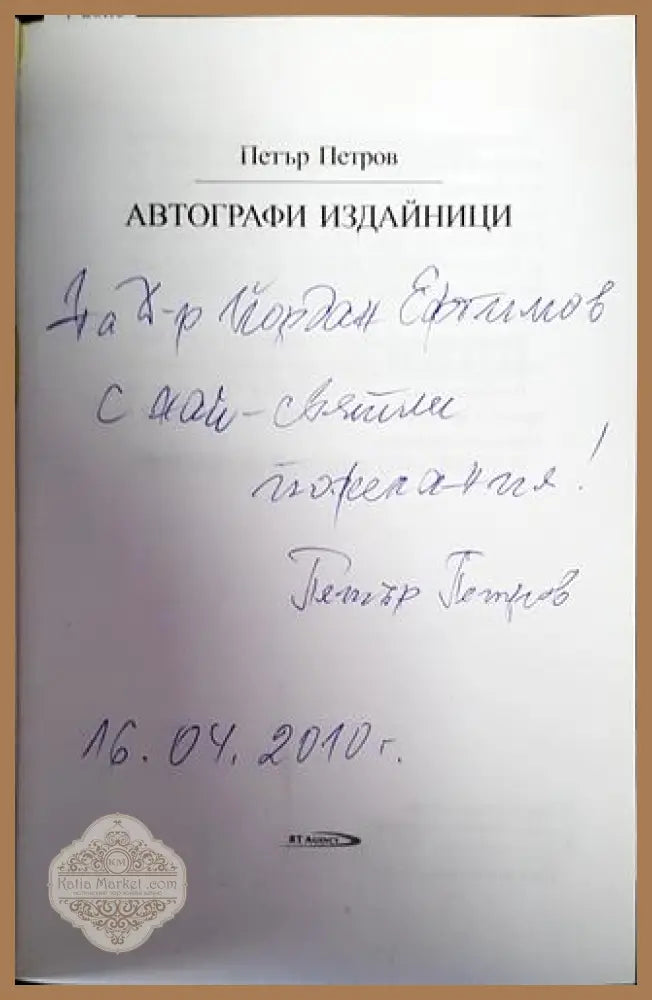 Петър Петров
АВТОГРАФИ ИЗДАЙНИЦИ
На Д-р Йордан Ефтимов
с най-святли
пожелания!
Петър Петров
16.04.2010г.
RT AGENCY
KM
Katia Market.com